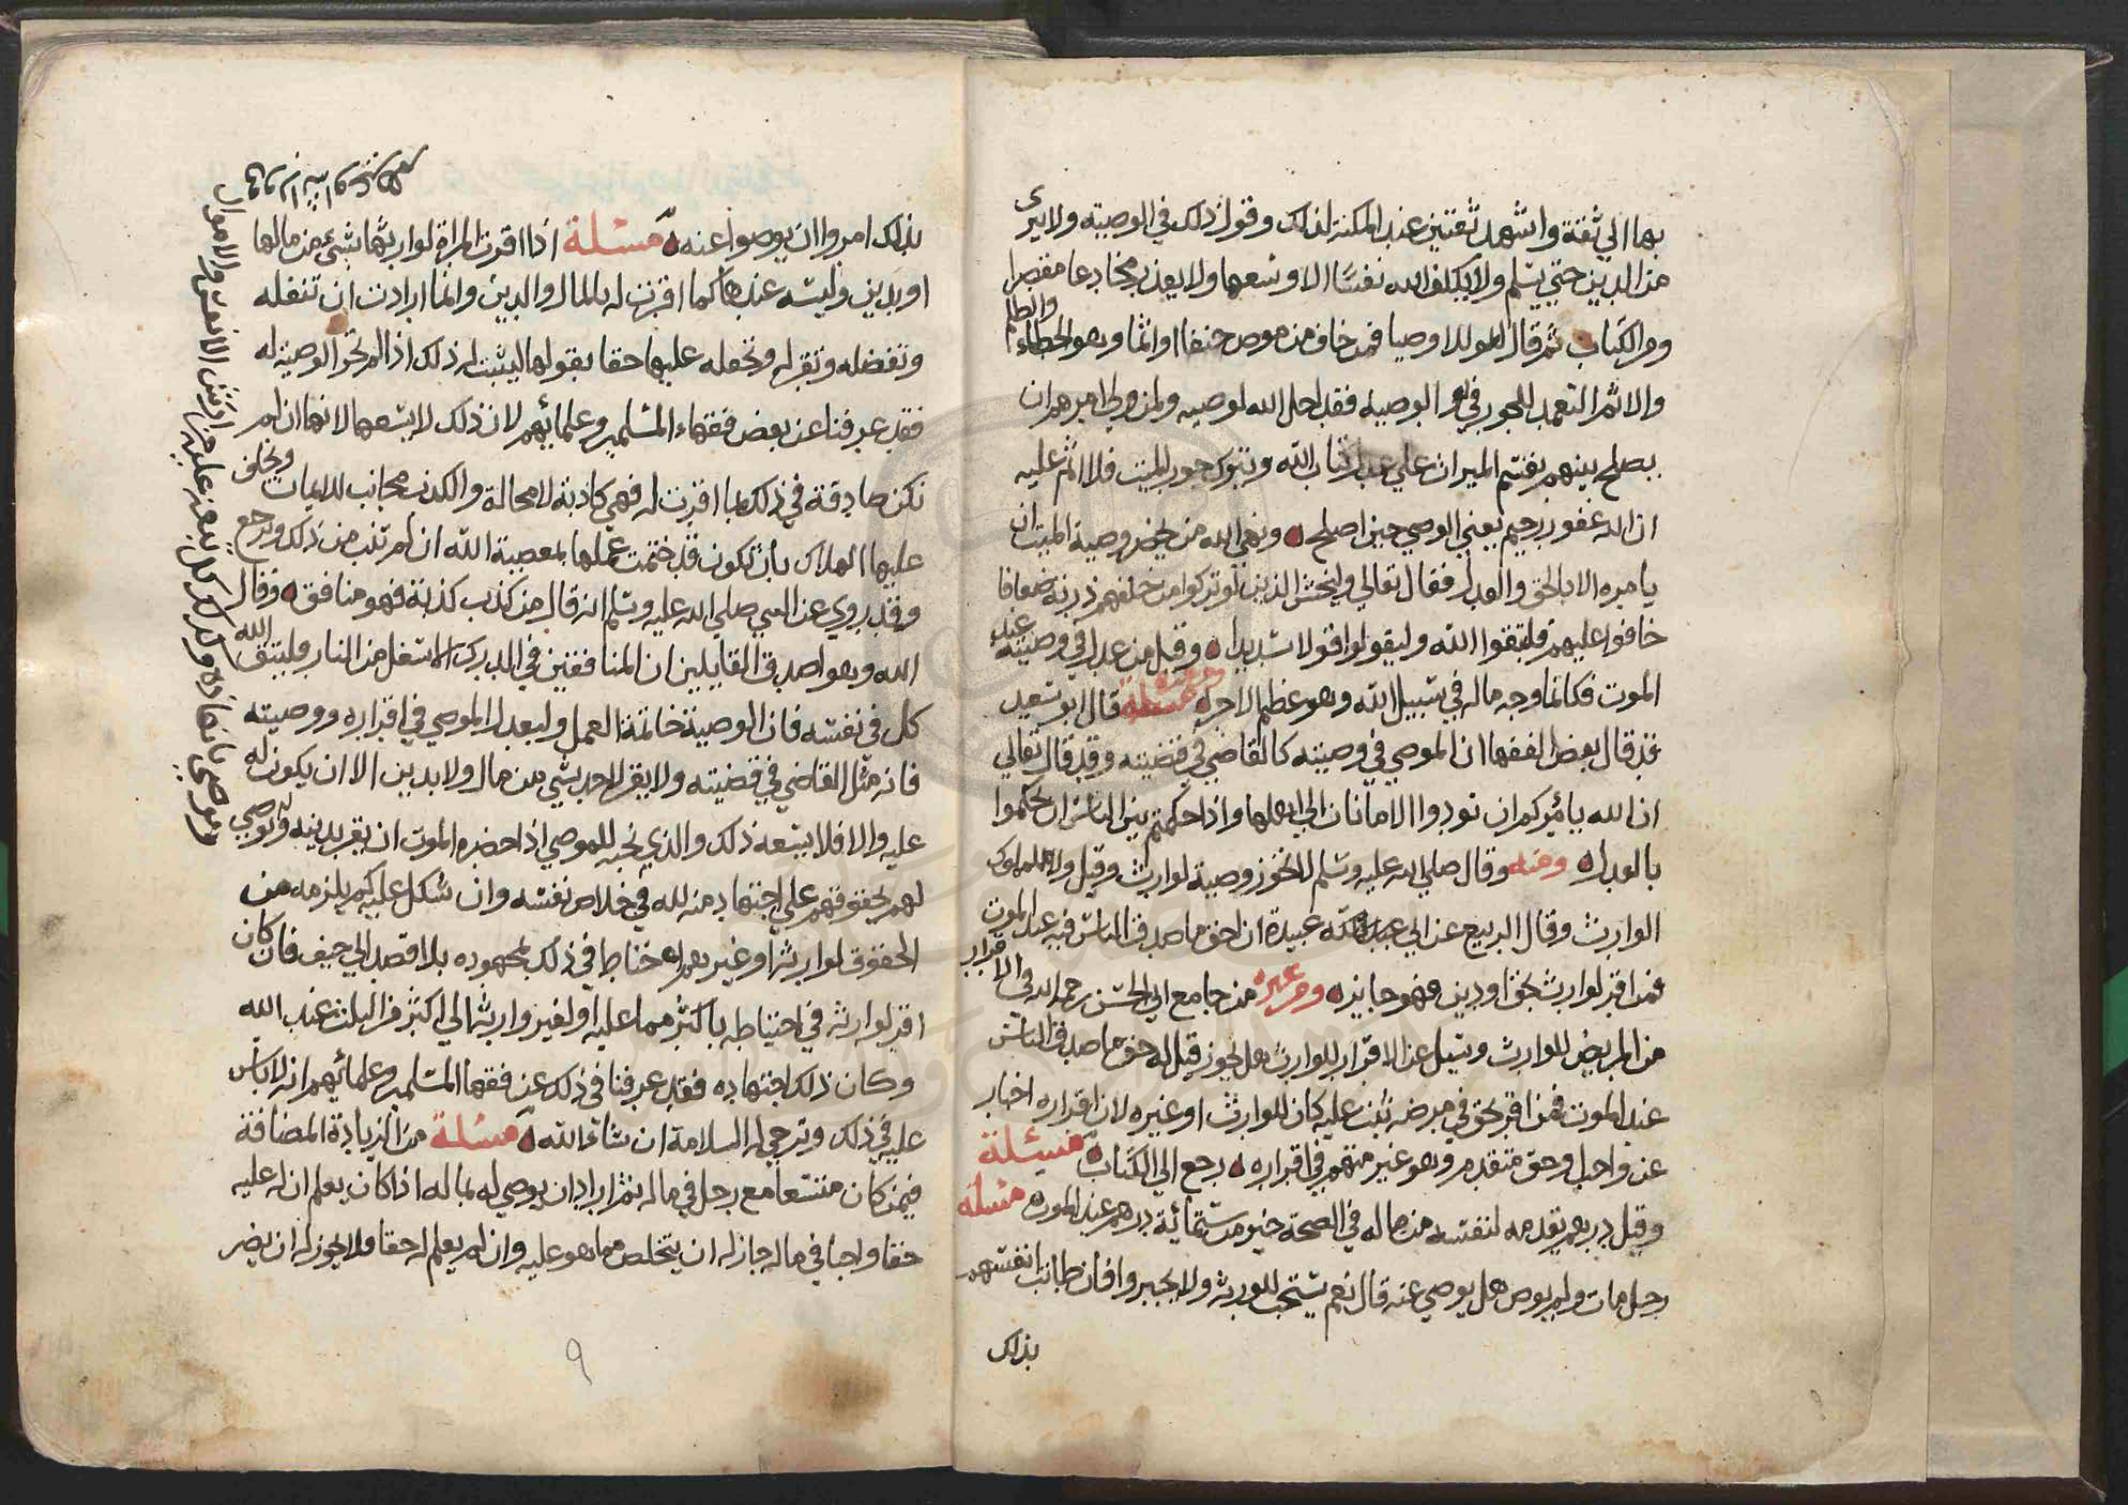 بها الي ثقة واشهد ثقتين عند المكنة لذلك وقول ذلك في الوصيته ولا يبري
من الدين حتي يسلم ولا يكلف الله نفسًا الا وسعها ولا يعذر مخادعا مقصرا
ومن الكتاب ثم قال للاوصيا فمن خاف من موص جنفا او اثما وهو الخطاء والظلم
والاثم التعمد للجور في الوصية فقد احل الله لوصيه ولمن ولي امرهم ان
يصلح بينهم بقسم الميراث علي عدل كتاب الله ويترك جور الميت فلا اثم عليه
ان الله غفور رحيم يعني الوصي حين اصلح ٥ ونهي الله من يحضر وصية الميت ان
يامره الا بالحق والعدل فقال تعالي وليخش الذين لو تركوا من خلفهم ذرية ضعافا
خافوا عليهم فليتقوا الله وليقولوا قولا سديدا ٥ وقيل من عدل في وصيته عند
الموت فكانما وجه ماله في سبيل الله وهو عظم الاجر ٥ مسئلة قال ابو سعيد
قد قال بعض الفقها ان الموصي في وصيته كالقاضي في قضيته وقد قال تعالي
ان الله يامركم ان تودوا الامانات الي اهلها واذا حكمتم بين الناس ان تحكموا
بالعدل ٥ ومنه وقال صلي الله عليه وسلم لا تجوز وصية لوارث وقيل ولا لمملوك
الوارث وقال الربيع عن ابي عبيدة ان احق ما صدق الناس فيه عند الموت
فمن اقر لوارث بحق او دين فهو جايز ٥ ومن غيره من جامع ابي الحسن رحمه الله والاقرار
من المريض للوارث وسيل عن الاقرار للوارث هل يجوز قيل له حق ما صدق الناس
عند الموت فمن اقر بحق في مرضه ثبت عليه كان للوارث او غيره لان اقراره اخبار
عن واجب وحق متقدم وهو غير متهم في اقراره ٥ رجع الي الكتاب ٥ مسئلة
وقيل درهم يقدمه لنفسه من ماله في الصحة خير من ستمائة درهم عند الموت ٥ مسئلة
رجل مات ولم يوص هل يوصي عنه قال نعم يستحب للورثه ولا يجبروا فان طابت انفسهم
بذلك
بذلك امروا ان يوصوا عنه ٥ مسئلة اذا اقرت المراة لوارثها بشئ من مالها
او بدين وليسه عندها كما اقرت له بالمال والدين وانما ارادت ان تنفله
وتفضله وتقر له وتجعله عليها حقا بقولها ليثبت له ذلك اذا لم تجز الوصية له
فقد عرفنا عن بعض فقهاء المسلمين وعلمائهم لان ذلك لا يسعها لانها ان لم
تكن صادقة في ذلك بما اقرت له فهي كاذبة لا محالة والكذب مجانب للايمان ويخاف
عليها الهلاك بان تكون قد ختمت عملها بمعصية الله ان لم تتب من ذلك وترجع
وقد روي عن النبي صلي الله عليه وسلم انه قال من كذب كذبة فهو منافق ٥ وقال
الله وهو اصدق القايلين ان المنافقين في الدرك الاسفل من النار فليتق الله
كل في نفسه فان الوصية خاتمة العمل وليعدل الموصي في اقراره ووصيته
فانه مثل القاضي في قضيته ولا يقر لاحد بشي من مال ولا بدين الا ان يكون له
عليه والا فلا يسعه ذلك والذي نحبه للموصي اذا حضره الموت ان يقر بدينه ويوصي
لهم بحقوقهم علي اجتهاد منه لله في خلاص نفسه وان شكل عليه كم يلزمه من
الحقوق لوارثه او غيرهم احتاط في ذلك بمجهوده بلا قصد الي حيف فان كان
اقر لوارثه في احتياطه باكثر مما عليه او لغير وارثه الي اكثر فرالبلت عند الله
وكان ذلك اجتهاده فقد عرفنا في ذلك عن فقها المسلمين وعلمائهم انه لا باس
عليه في ذلك وترجي له السلامة ان شاء الله ٥ مسئلة من الزيادة المضافة
فيمن كان متسعا مع رجل في ماله ثم اراد ان يوصي له بماله اذا كان يعلم ان له عليه
حقا واجبا في ماله جاز له ان يتخلص مما هو عليه وان لم يعلم له حقا فلا يجوز له ان يضر
٩